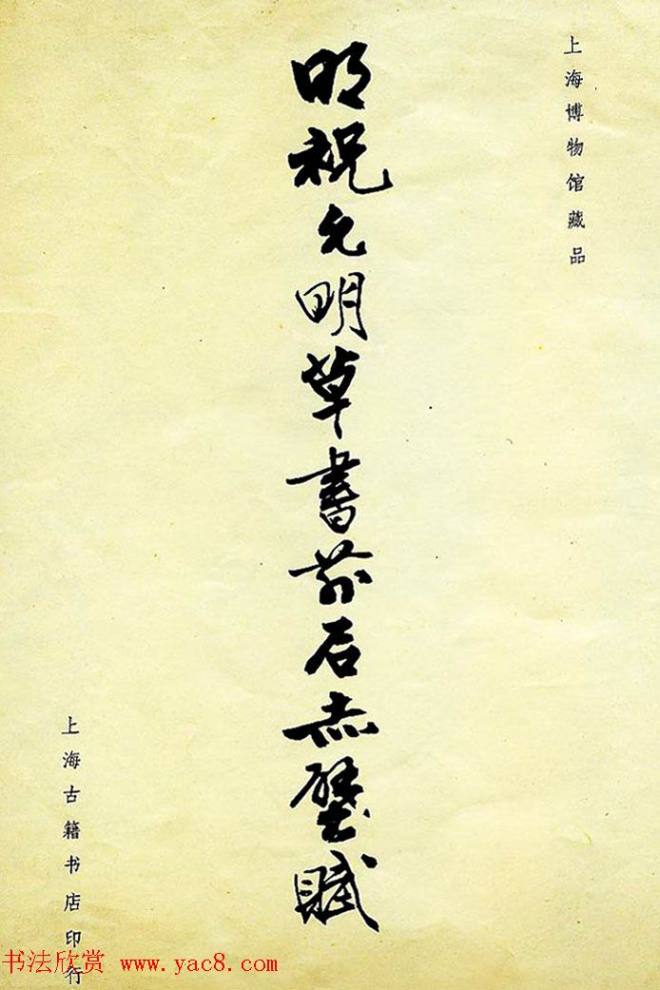 上海博物馆藏品
明祝允明草書前后赤壁賦
上海古籍书店印行
书法欣赏 www.yac8.com